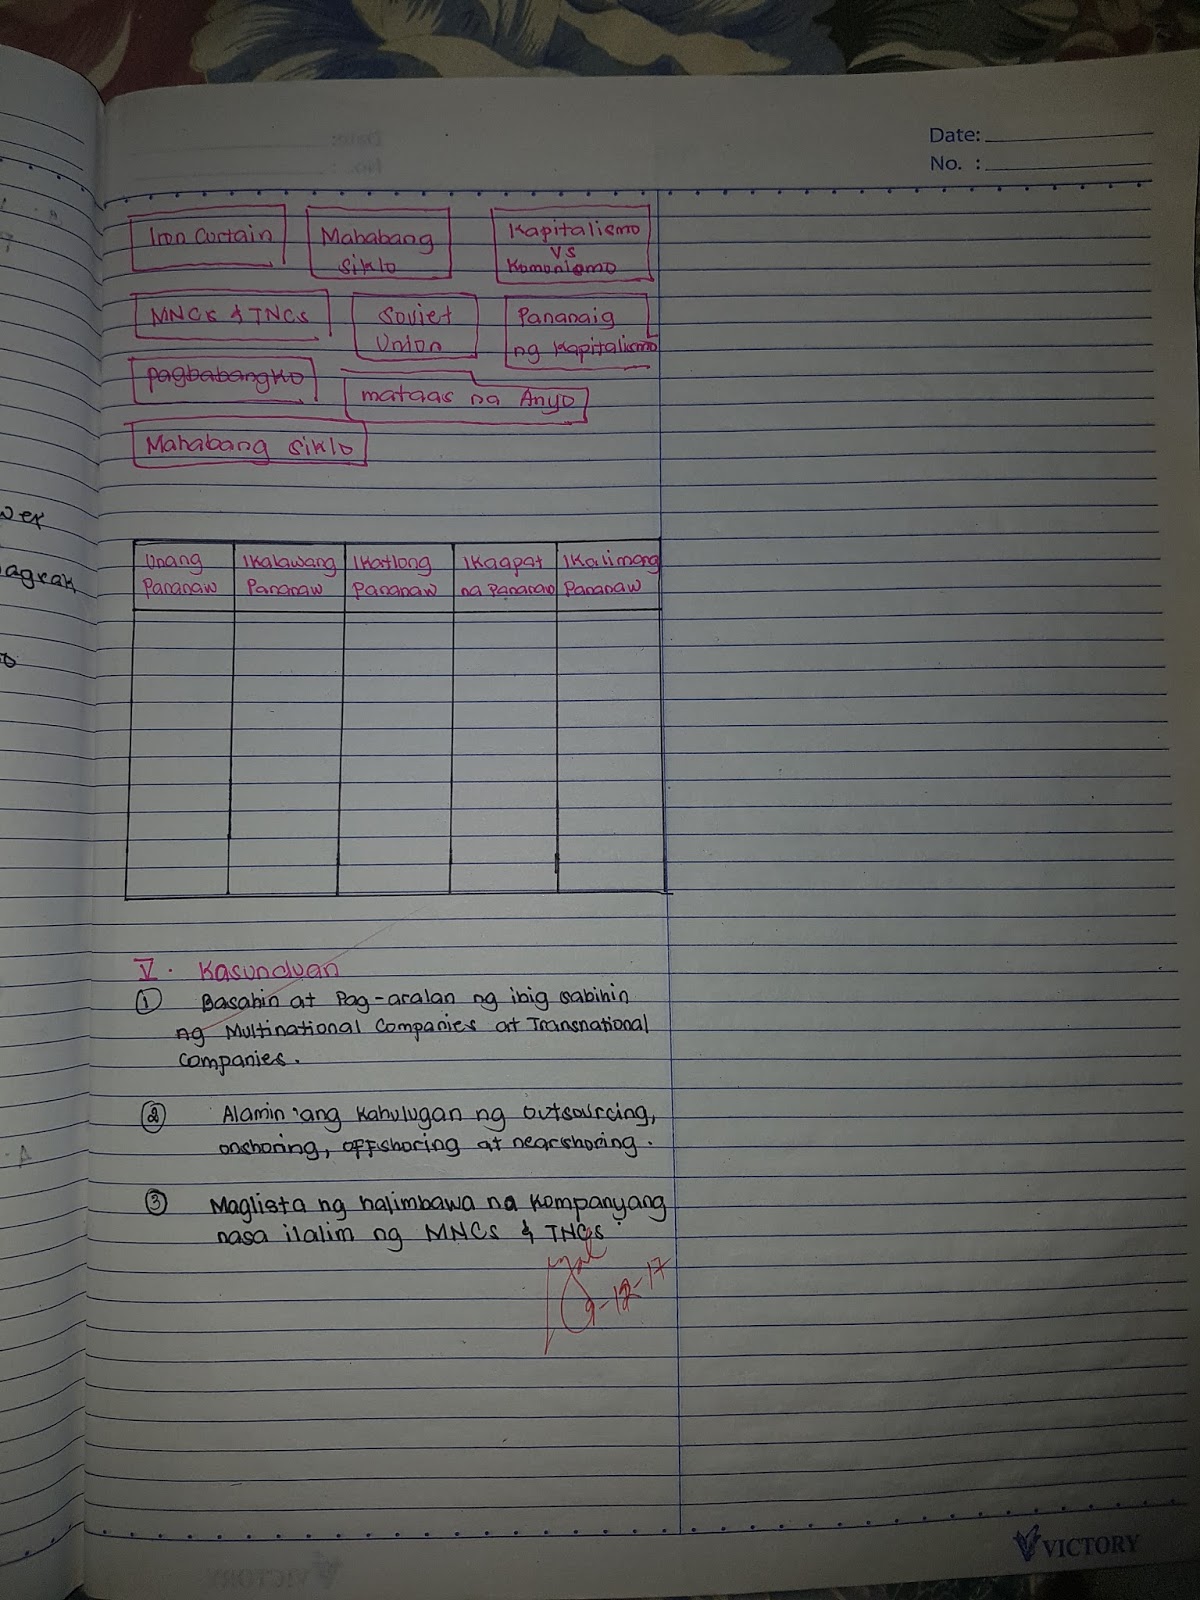 Date:
No. :
Iron Curtain
Mahabang
siklo
Kapitalismo
vs
Komonismo
MNCs & TNCs
Soviet
Union
Pananaig
ng Kapitalismo
pagbabangko
mataas na Anyo
Mahabang siklo
Unang
Pananaw
Ikalawang
Pananaw
Ikatlong
Pananaw
Ikaapat
na Pananaw
Ikalimang
Pananaw
V. Kasunduan
① Basahin at Pag-aralan ng ibig sabihin
ng Multinational Companies at Transnational
Companies.
② Alamin ang Kahulugan ng outsourcing,
onshoring, offshoring at nearshoring.
③ Maglista ng halimbawa na Kompanyang
nasa ilalim ng MNCs & TNCs.
wer
agrak
VICTORY